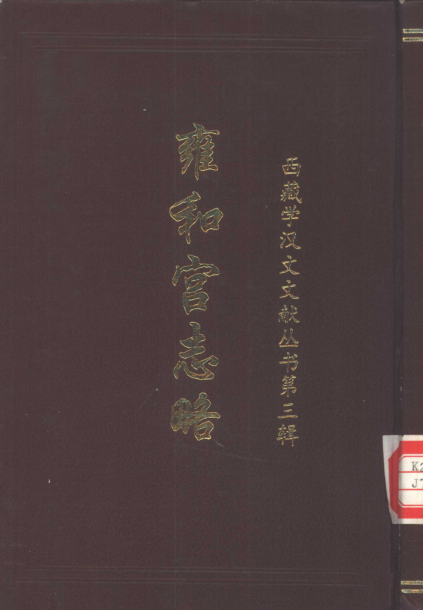 西藏学汉文文献丛书第三辑
雍和宫志略
K2
J7